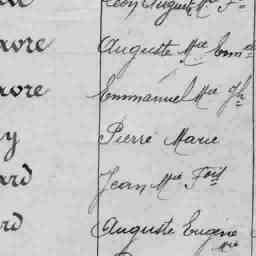 Léon August. Mie Fs
avre Auguste Mie Emel
avre Emmanuel Mie Jh
y Pierre Marie
ard Jean Mie Fois
rd Auguste Eugène
Mie